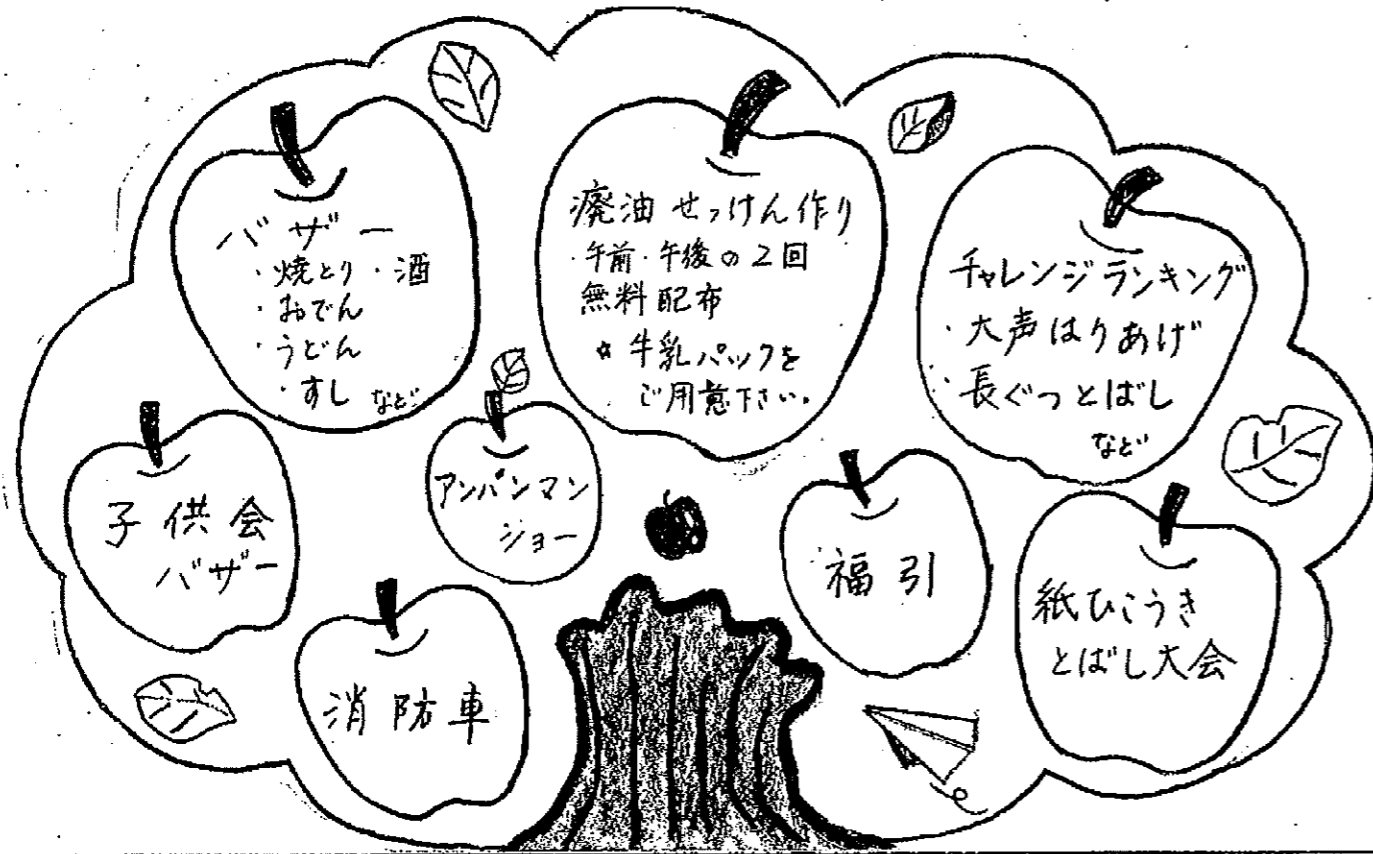 バザー
・焼とり・酒
・おでん
・うどん
・すし など
廃油せっけん作り
・午前・午後の2回
無料配布
☆牛乳パックを
ご用意下さい。
チャレンジランキング
・大声はりあげ
・長ぐつとばし
など
子供会
バザー
アンパンマン
ショー
福引
紙ひこうき
とばし大会
消防車